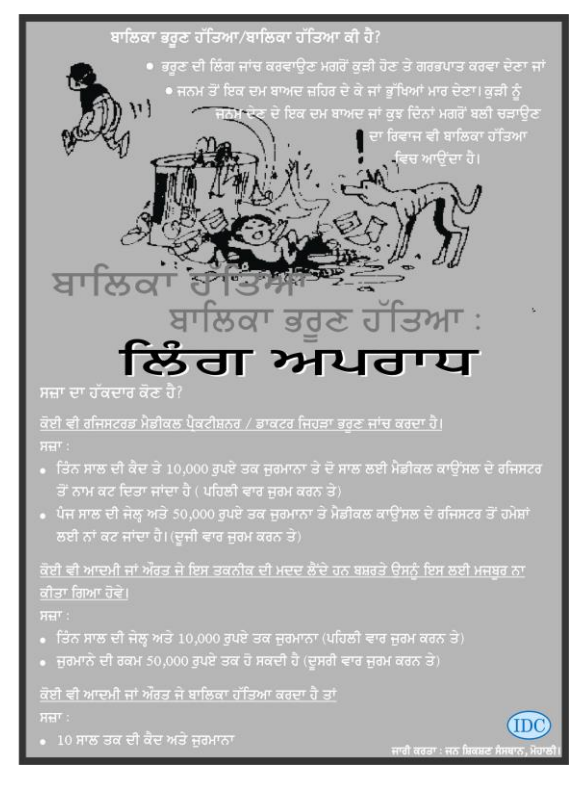 ਬਾਲਿਕਾ ਭਰੂਣ ਹੱਤਿਆ/ਬਾਲਿਕਾ ਹੱਤਿਆ ਕੀ ਹੈ?
• ਭਰੂਣ ਦੀ ਲਿੰਗ ਜਾਂਚ ਕਰਵਾਉਣ ਮਗਰੋਂ ਕੁੜੀ ਹੋਣ ਤੇ ਗਰਭਪਾਤ ਕਰਵਾ ਦੇਣਾ ਜਾਂ
• ਜਨਮ ਤੋਂ ਇਕ ਦਮ ਬਾਅਦ ਜ਼ਹਿਰ ਦੇ ਕੇ ਜਾਂ ਭੁੱਖਿਆਂ ਮਾਰ ਦੇਣਾ। ਕੁੜੀ ਨੂੰ
ਜਨਮ ਦੇਣ ਦੇ ਇਕ ਦਮ ਬਾਅਦ ਜਾਂ ਕੁਝ ਦਿਨਾਂ ਮਗਰੋਂ ਬਲੀ ਚੜਾਉਣ
ਦਾ ਰਿਵਾਜ ਵੀ ਬਾਲਿਕਾ ਹੱਤਿਆ
ਵਿਚ ਆਉਂਦਾ ਹੈ।
ਬਾਲਿਕਾ ਹੱਤਿਆ
ਬਾਲਿਕਾ ਭਰੂਣ ਹੱਤਿਆ :
ਲਿੰਗ ਅਪਰਾਧ
ਸਜ਼ਾ ਦਾ ਹੱਕਦਾਰ ਕੋਣ ਹੈ?
ਕੋਈ ਵੀ ਰਜਿਸਟਰਡ ਮੈਡੀਕਲ ਪ੍ਰੈਕਟੀਸ਼ਨਰ / ਡਾਕਟਰ ਜਿਹੜਾ ਭਰੂਣ ਜਾਂਚ ਕਰਦਾ ਹੈ।
ਸਜ਼ਾ :
• ਤਿੰਨ ਸਾਲ ਦੀ ਕੈਦ ਤੇ 10,000 ਰੁਪਏ ਤਕ ਜੁਰਮਾਨਾ ਤੇ ਦੋ ਸਾਲ ਲਈ ਮੈਡੀਕਲ ਕਾਉਂਸਲ ਦੇ ਰਜਿਸਟਰ
ਤੋਂ ਨਾਮ ਕਟ ਦਿਤਾ ਜਾਂਦਾ ਹੈ ( ਪਹਿਲੀ ਵਾਰ ਜੁਰਮ ਕਰਨ ਤੇ)
• ਪੰਜ ਸਾਲ ਦੀ ਜੇਲ੍ਹ ਅਤੇ 50,000 ਰੁਪਏ ਤਕ ਜੁਰਮਾਨਾ ਤੇ ਮੈਡੀਕਲ ਕਾਉਂਸਲ ਦੇ ਰਜਿਸਟਰ ਤੋਂ ਹਮੇਸ਼ਾਂ
ਲਈ ਨਾਂ ਕਟ ਜਾਂਦਾ ਹੈ।(ਦੂਜੀ ਵਾਰ ਜੁਰਮ ਕਰਨ ਤੇ)
ਕੋਈ ਵੀ ਆਦਮੀ ਜਾਂ ਔਰਤ ਜੇ ਇਸ ਤਕਨੀਕ ਦੀ ਮਦਦ ਲੈਂਦੇ ਹਨ ਬਸ਼ਰਤੇ ਉਸਨੂੰ ਇਸ ਲਈ ਮਜਬੂਰ ਨਾ
ਕੀਤਾ ਗਿਆ ਹੋਵੇ।
ਸਜ਼ਾ :
• ਤਿੰਨ ਸਾਲ ਦੀ ਜੇਲ੍ਹ ਅਤੇ 10,000 ਰੁਪਏ ਤਕ ਜੁਰਮਾਨਾ (ਪਹਿਲੀ ਵਾਰ ਜੁਰਮ ਕਰਨ ਤੇ)
• ਜੁਰਮਾਨੇ ਦੀ ਰਕਮ 50,000 ਰੁਪਏ ਤਕ ਹੋ ਸਕਦੀ ਹੈ (ਦੂਸਰੀ ਵਾਰ ਜੁਰਮ ਕਰਨ ਤੇ)
ਕੋਈ ਵੀ ਆਦਮੀ ਜਾਂ ਔਰਤ ਜੇ ਬਾਲਿਕਾ ਹੱਤਿਆ ਕਰਦਾ ਹੈ ਤਾਂ
ਸਜ਼ਾ :
• 10 ਸਾਲ ਤਕ ਦੀ ਕੈਦ ਅਤੇ ਜੁਰਮਾਨਾ
IDC
ਜਾਰੀ ਕਰਤਾ : ਜਨ ਸ਼ਿਕਸ਼ਣ ਸੰਸਥਾਨ, ਮੋਹਾਲੀ।